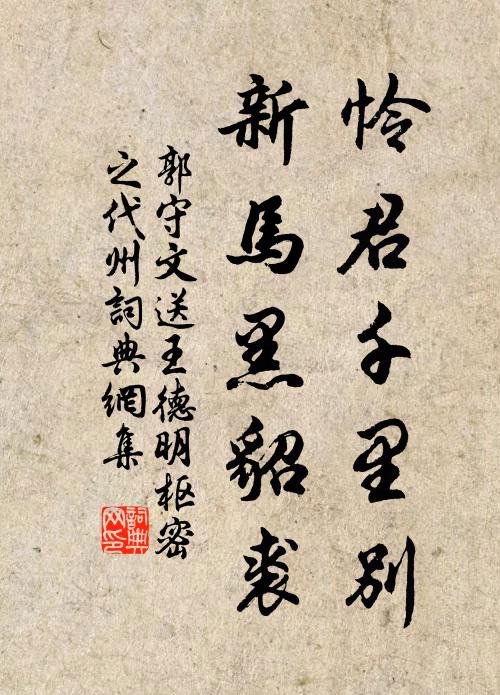 怜君千里别
新馬黑貂裘
郭守文送王德明枢密
之代州詞典網集
詞典
网印